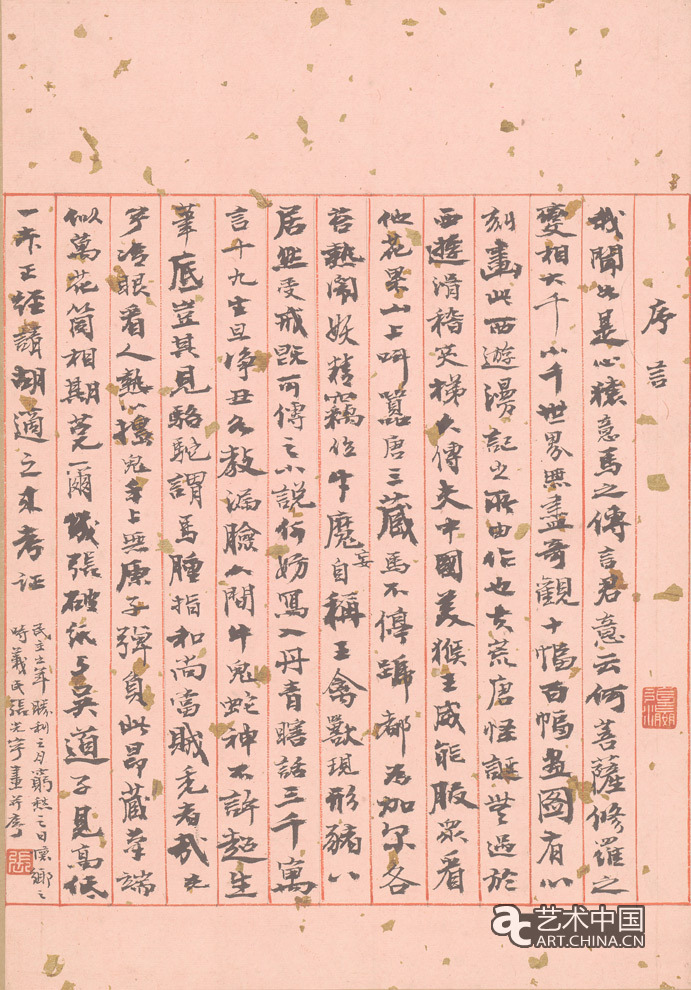 序言
我聞如是心猿意馬之傳言君意云何菩薩修羅之
變相大千小千世界無盡奇觀十幅百幅畫圖有心
刻畫此西遊漫記之所由作也夫荒唐怪誕無過於
西遊滑稽莫大傳夫中國美猴王威能服眾看
他花果山上叫囂唐三藏馬不停蹄都為加
熱鬧妖精竊位牛魔妄自稱王禽獸現形豬八
居然受戒既可傳之小說何妨寫入丹青瞎話三千寓
言十九生旦淨丑各教漏臉人間牛鬼蛇神不許超生
筆底豈其見駱駝謂馬腫指和尚當賊禿者哉
冷眼看人熱心手上無彈負此昂藏筆端
似萬花筒相期莞爾幾張破紙與吳道子見高低
一正經請胡適之來考証
民主勝利之月窮愁之日懷鄉之
時義民張光宇畫并序
張
艺术中国
ART.CHINA.CN